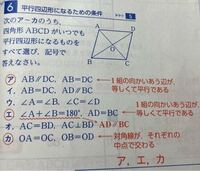 6 平行四辺形になるための条件
次のア～カのうち、
四角形ABCDがいつでも
平行四辺形になるものを
すべて選び、記号で
答えなさい。
A
D
O
B
C
ア. AB∥DC, AB=DC
1組の向かいあう辺が、等しくて平行である
イ. AB=DC, AD∥BC
ウ. ∠A=∠B, ∠C=∠D
エ. ∠A+∠B=180°, AD=BC
1組の向かいあう辺が、等しくて平行である
オ. AC=BD, AC⊥BD
AD∥BC
カ. OA=OC, OB=OD
対角線が、それぞれの中点で交わる
ア、エ、カ